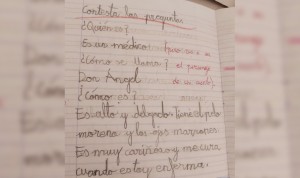 Contesta las preguntas
¿Quién es?
Es un médico
¿Cómo se llama? el personaje
Don Ángel de un cuento
¿Cómo es?
Es alto y delgado. Tiene el pelo
moreno y los ojos marrones
Es muy cariñoso y me cura
cuando estoy enferma.